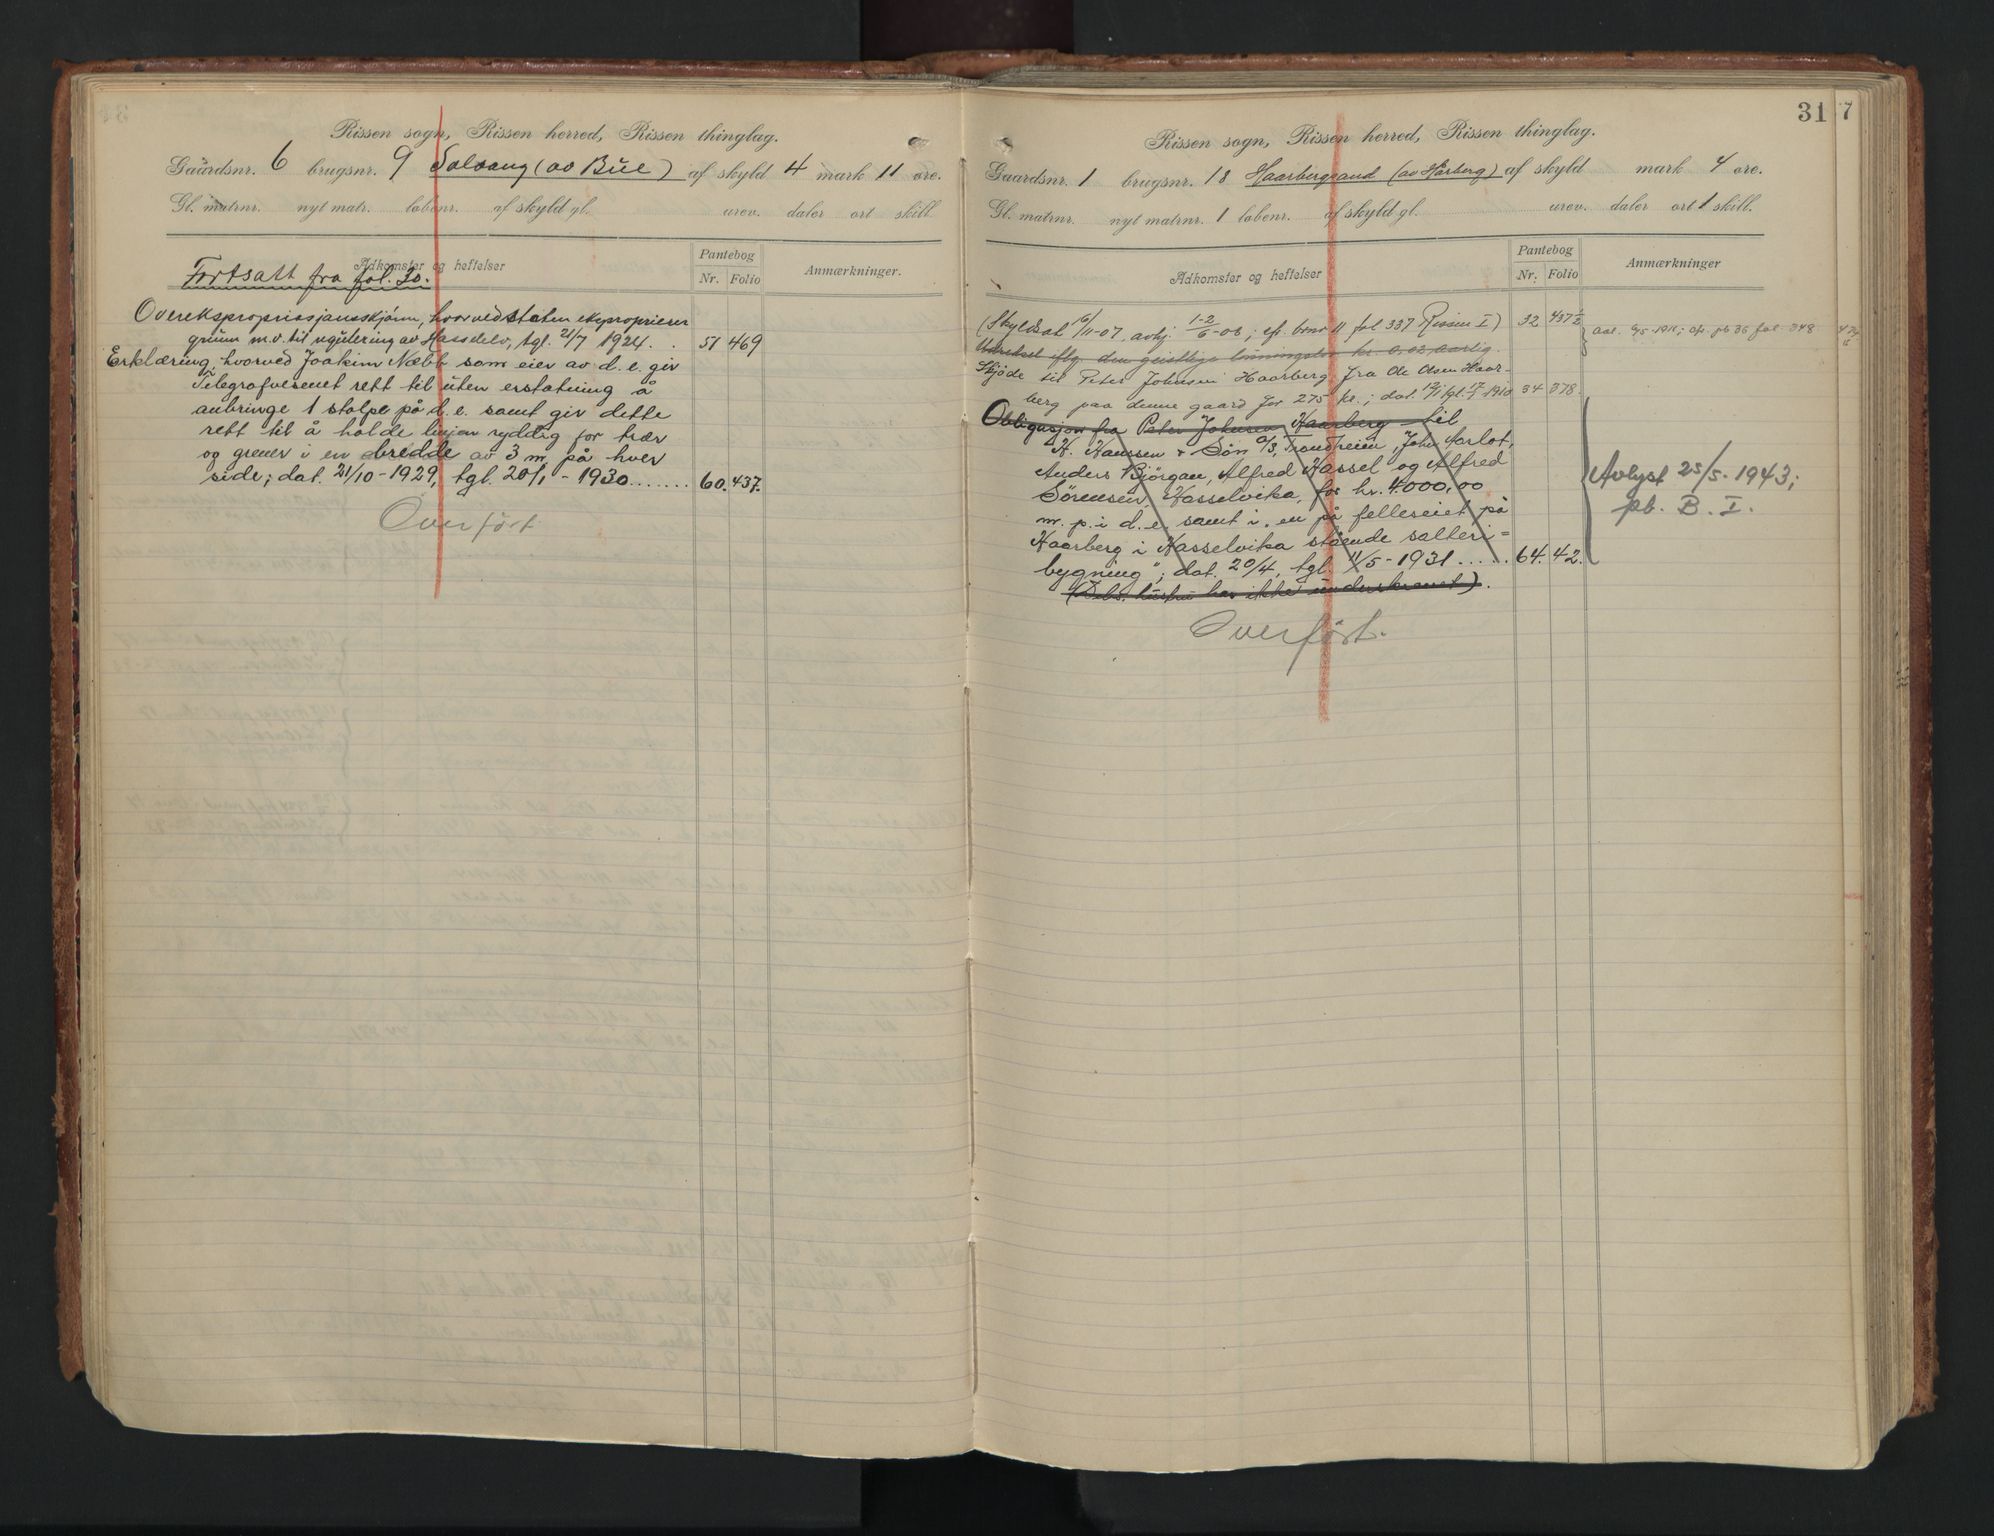 Rissen sogn, Rissen herred, Rissen thinglag.
Gaardsnr. 6 brugsnr. 9 Solvang (av Bue) af skyld 4 mark 11 øre.
Gl. matrnr. nyt matr. løbenr. af skyld gl. urev. daler ort skill.
Adkomster og heftelser
Pantebog
Nr. Folio
Anmærkninger.
Fortsatt fra fol. 30.
Overekspropriasjonsskjønn, hvorved staten eksproprierer
grunn m.v. til regulering av Hasselelv, tgl. 21/7 1924. . 51 469
Erklæring, hvorved Joakim Næbb som eier av d. e. gir
Telegrafvesenet rett til uten erstatning å
anbringe 1 stolpe på d. e. samt gir dette
rett til å holde linjen ryddig for trær
og grener i en bredde av 3 m på hver
side; dat. 21/10-1929, tgl. 20/1-1930....... 60. 437.
Overført
31 7
Rissen sogn, Rissen herred, Rissen thinglag.
Gaardsnr. 1 brugsnr. 18 Haarbergsand (av Hårberg) af skyld mark 4 øre.
Gl. matrnr. nyt matrnr. 1 løbenr. af skyld gl. urev. daler ort 1 skill.
Adkomster og heftelser
Pantebog
Nr. Folio
Anmærkninger
(Skyldsat 16/11-07, avhj. 1-2/6-08; cf. brnr 11 fol 337 Rissen I) 32 437 1/2
aal. 9/5-1911; cfr. pb 36 fol. 348
Utreksel iflg. den geistlige lønningslov kr. 0,02 aarlig.
Skjøde til Peter Johnsen Haarberg fra Ole Olsen Haar-
berg paa denne gaard for 275 kr.; dat. 12/1 tgl. 17/1 1910 34 378.
Obligasjon fra Peter Johnsen Haarberg til
H. Hanssen & Søn A/S, Trondheim, John Aarlot,
Anders Bjørgan, Alfred Hassel og Alfred
Sørensen, Hasselvika, for kr. 4.000,00
m. p. i d. e. samt i „en på felleseiet på
Haarberg i Hasselvika stående salteri=
bygning"; dat. 20/4, tgl. 11/5-1931...... 64. 42.
(Deb. hustru har ikke underskrevet).
Avlyst 25/5-1943;
pb. B. I.
Overført.